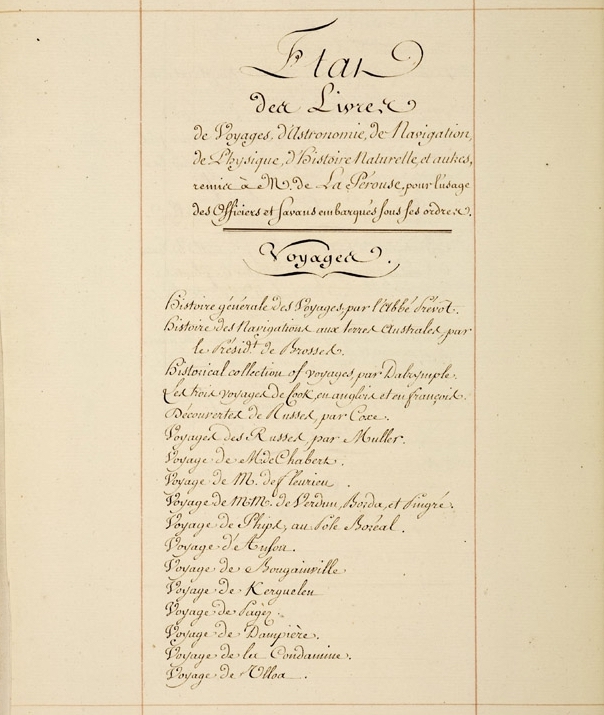 Etat
des Livres
de Voyages, d'Astronomie, de Navigation,
de Physique, d'Histoire Naturelle, et autres,
remis à M. de La Pérouse, pour l'usage
des Officiers et savans embarqués sous ses ordres.
Voyages.
Histoire générale des Voyages, par l'Abbé Prevot.
Histoire des Navigations aux terres Australes, par
le Présid.t de Brosses.
Historical collection of voyages, par Dalrymple.
Les trois voyages de Cook, en anglois et en françois.
Découvertes de Russes, par Coxe.
Voyages des Russes, par Muller.
Voyage de M. de Chabert.
Voyage de M. de fleurieu
Voyage de MM. de Verdun, Borda, et Pingré.
Voyage de Phips, au Pole Boréal.
Voyage d'Anson.
Voyage de Bougainville
Voyage de Kerguelen
Voyage de Pagèz.
Voyage de Dampière.
Voyage de la Condamine.
Voyage de Ulloa.